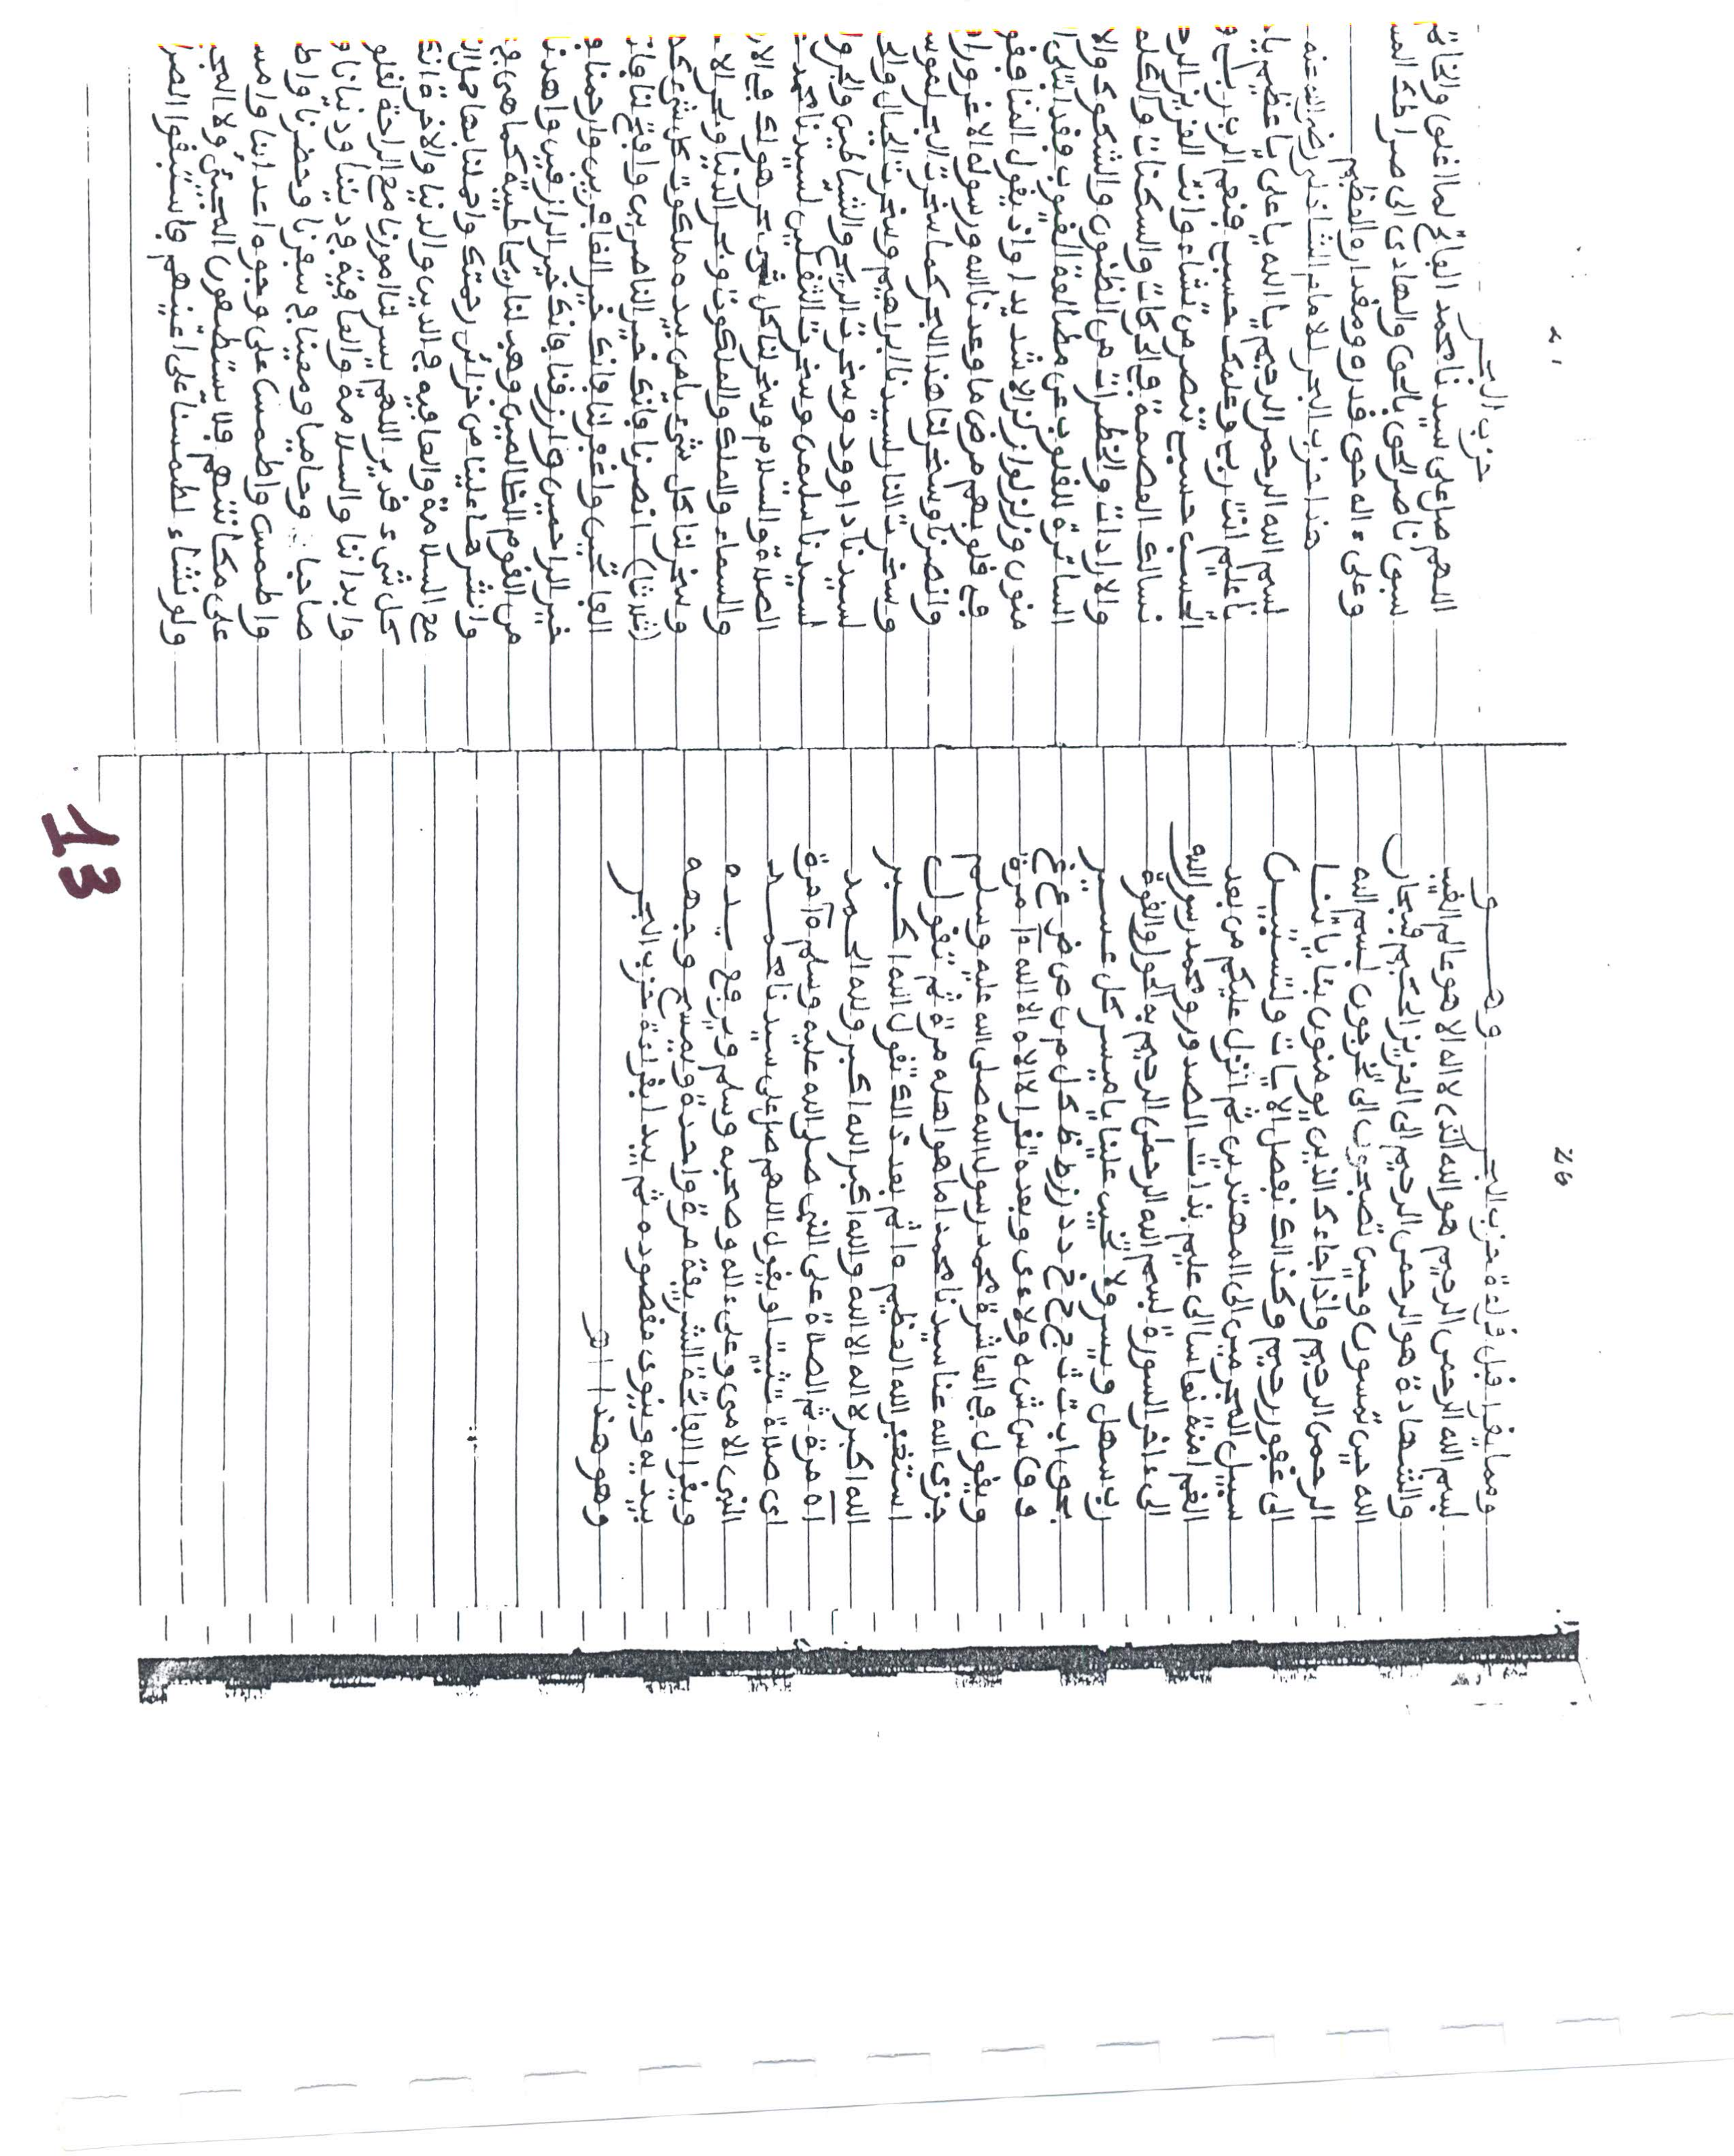 26
ومما يقرا قبل قراءة حزب البحر وهو
بسم الله الرحمن الرحيم هو الله الذى لا اله الا هو عالم الغيب
والشهادة هو الرحمن الرحيم الى العزيز الحكيم فسبحان
الله حين تمسون وحين تصبحون الى تخرجون بسم الله
الرحمن الرحيم واذا جاءك الذين يومنون بئاياتنا
الى غفور رحيم وكذالك نفصل الايات ولتستبين
سبيل المجرمين الى المهتدين ثم انزل عليكم من بعد
الغم امنة نعاسا الى عليم بذات الصدور ومحمد رسول الله
الى ءاخر السورة بسم الله الرحمن الرحيم به الحول والقوة
رب سهل ويسر ولا علينا يا ميسر كل عسير
بحق اب ت ث ج ح خ د ذ ر ز ط ظ ك ل م ن ص ض ع غ
ف ق س ش ه و لا ء ى وبعده تقرا لا اله الا الله مرة
ويقول فى العاشرة محمد رسول الله صلى الله عليه وسلم
جزى الله عنا سيدنا محمدا ما هو اهله مرة ثم تقول
استغفر الله العظيم ثم بعد ذالك تقول الله اكبر
الله اكبر لا اله الا الله والله اكبر الله اكبر ولله الحمد
مرة ثم الصلاة على النبى صلى الله عليه وسلم مرة
اى صلاة شئت او يقول اللهم صل على سيدنا محمد
النبى الامى وعلى ءاله وصحبه وسلم ويرفع يده
ويقرا الفاتحة الشريفة مرة واحدة ويمسح وجهه
بيديه وينوى مقصوده ثم يبدا بقراءة حزب البحر
وهو هذا اهـ
حزب البحر
اللهم صل على سيدنا محمد الفاتح لما اغلق والخاتم
سبق ناصر الحق بالحق والهادى الى صراطك المس
وعلى ءاله حق قدره ومقداره العظيم
هذا حزب البحر للامام الشاذلى رضى الله عنه
بسم الله الرحمن الرحيم يا الله يا على يا عظيم يا
يا عليم انت ربى وعلمك حسبى فنعم الرب ربى و
الحسب حسبى تنصر من تشاء وانت العزيز الر
نسالك العصمة فى الحركات والسكنات والكلم
والارادات والخطرات من الظنون والشكوك والا
الساترة للقلوب عن مطالعة الغيوب فقد ابتلى ا
منون وزلزلوا زلزالا شديدا واذ يقول المنافقو
فى قلوبهم مرض ما وعدنا الله ورسوله الا غرورا
وانصرنا وسخر لنا هذا البحر كما سخرت البحر لموس
وسخرت النار لسيدنا ابراهيم وسخرت الجبال وال
لسيدنا داوود وسخرت الريح والشياطين والجن و
لسيدنا سليمن وسخرت الثقلين لسيدنا محمد
الصلاة والسلام وسخر لنا كل بحر هو لك فى الار
والسماء والملك والملكوت وبحر الدنيا وبحر الا
وسخر لنا كل شىء يا من بيده ملكوت كل شىء ك
(ثلاثا) انصرنا فانك خير الناصرين وافتح لنا فا
الفاتحين واغفر لنا فانك خير الغافرين وارحمنا و
خير الراحمين وارزقنا فانك خير الرازقين واهدنا
من القوم الظالمين وهب لنا ريحا طيبة كما هى فى
وانشرها علينا من خزائن رحمتك واحملنا بها حمل ال
مع السلامة والعافية فى الدين والدنيا والاخرة ان
كل شىء قدير اللهم يسر لنا امورنا مع الراحة لقلو
وابداننا والسلامة والعافية فى ديننا ودنيانا و
صاحبا فى سفرنا وحضرنا واط
واطمس على وجوه اعدائنا وامس
على مكانتهم فلا يستطيعون المضى ولا المج
ولو نشاء لطمسنا على اعينهم فاستبقوا الصر
13